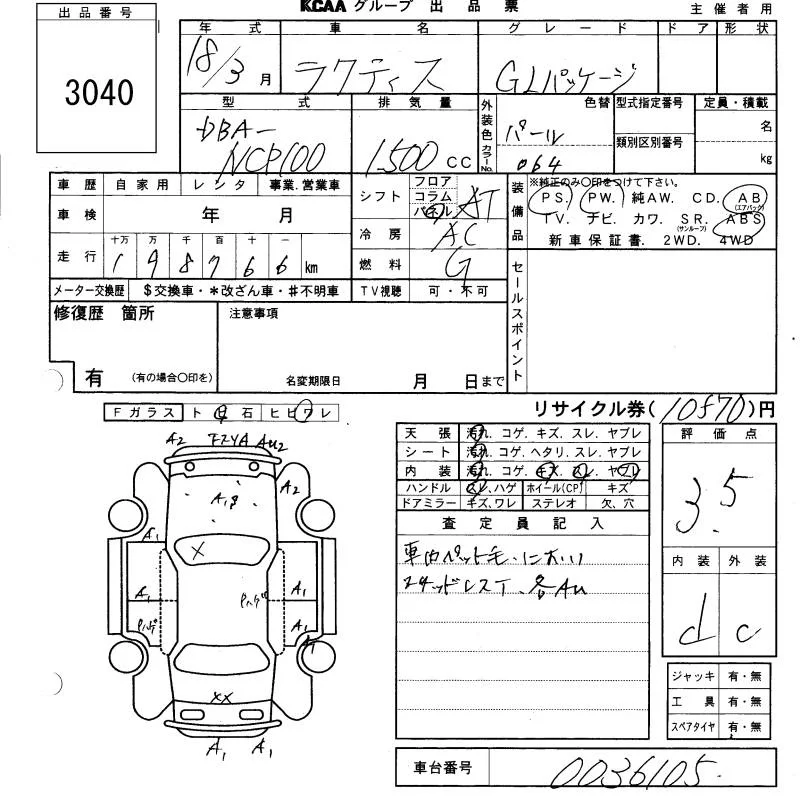 出品番号
3040
KCAA グループ 出 品 票
主 催 者 用
年 式
車 名
グ レ ー ド
ド ア
形 状
18/3 月
ラクティス
GLパッケージ
型 式
排 気 量
外装色 カラーNo.
色替
型式指定番号
定員・積載
DBA-
NCP100
1500 cc
パール
064
類別区別番号
名
kg
車 歴
自 家 用
レ ン タ
事業.営業車
シフト
フロア
コラム
パネル
AT
装備品
※純正のみ〇印をつけて下さい。
PS. PW. 純AW. CD. AB
(エアバック)
TV. ナビ カワ. SR. ABS
(サンルーフ)
新 車 保 証 書. 2WD. 4WD
車 検
年 月
冷 房
AC
走 行
十万 万 千 百 十 一
1 9 8 7 6 6 km
燃 料
G
メーター交換歴
$交換車・*改ざん車・#不明車
TV視聴
可・不可
セールスポイント
修復歴 箇所
注意事項
有
(有の場合〇印を)
名変期限日 月 日まで
リサイクル券(10570)円
Fガラス
ト 石
ヒビワレ
天 張
汚れ. コゲ. キズ. スレ. ヤブレ
シート
汚れ. コゲ. ヘタリ. スレ. ヤブレ
内 装
汚れ. コゲ. キズ. スレ. ヤブレ
ハンドル
スレ.ハゲ
ホイール(CP)
キズ
ドアミラー
キズ.ワレ
ステレオ
欠. 穴
評 価 点
3.5
内 装
外 装
d
c
査 定 員 記 入
車内ペット毛.におい
スタッドレスT. 各AU
A2
AU2
A2
A1
X
A1
A1
A1
A1
XX
A1
A1
ジャッキ
有・無
工 具
有・無
スペアタイヤ
有・無
車台番号
0036105